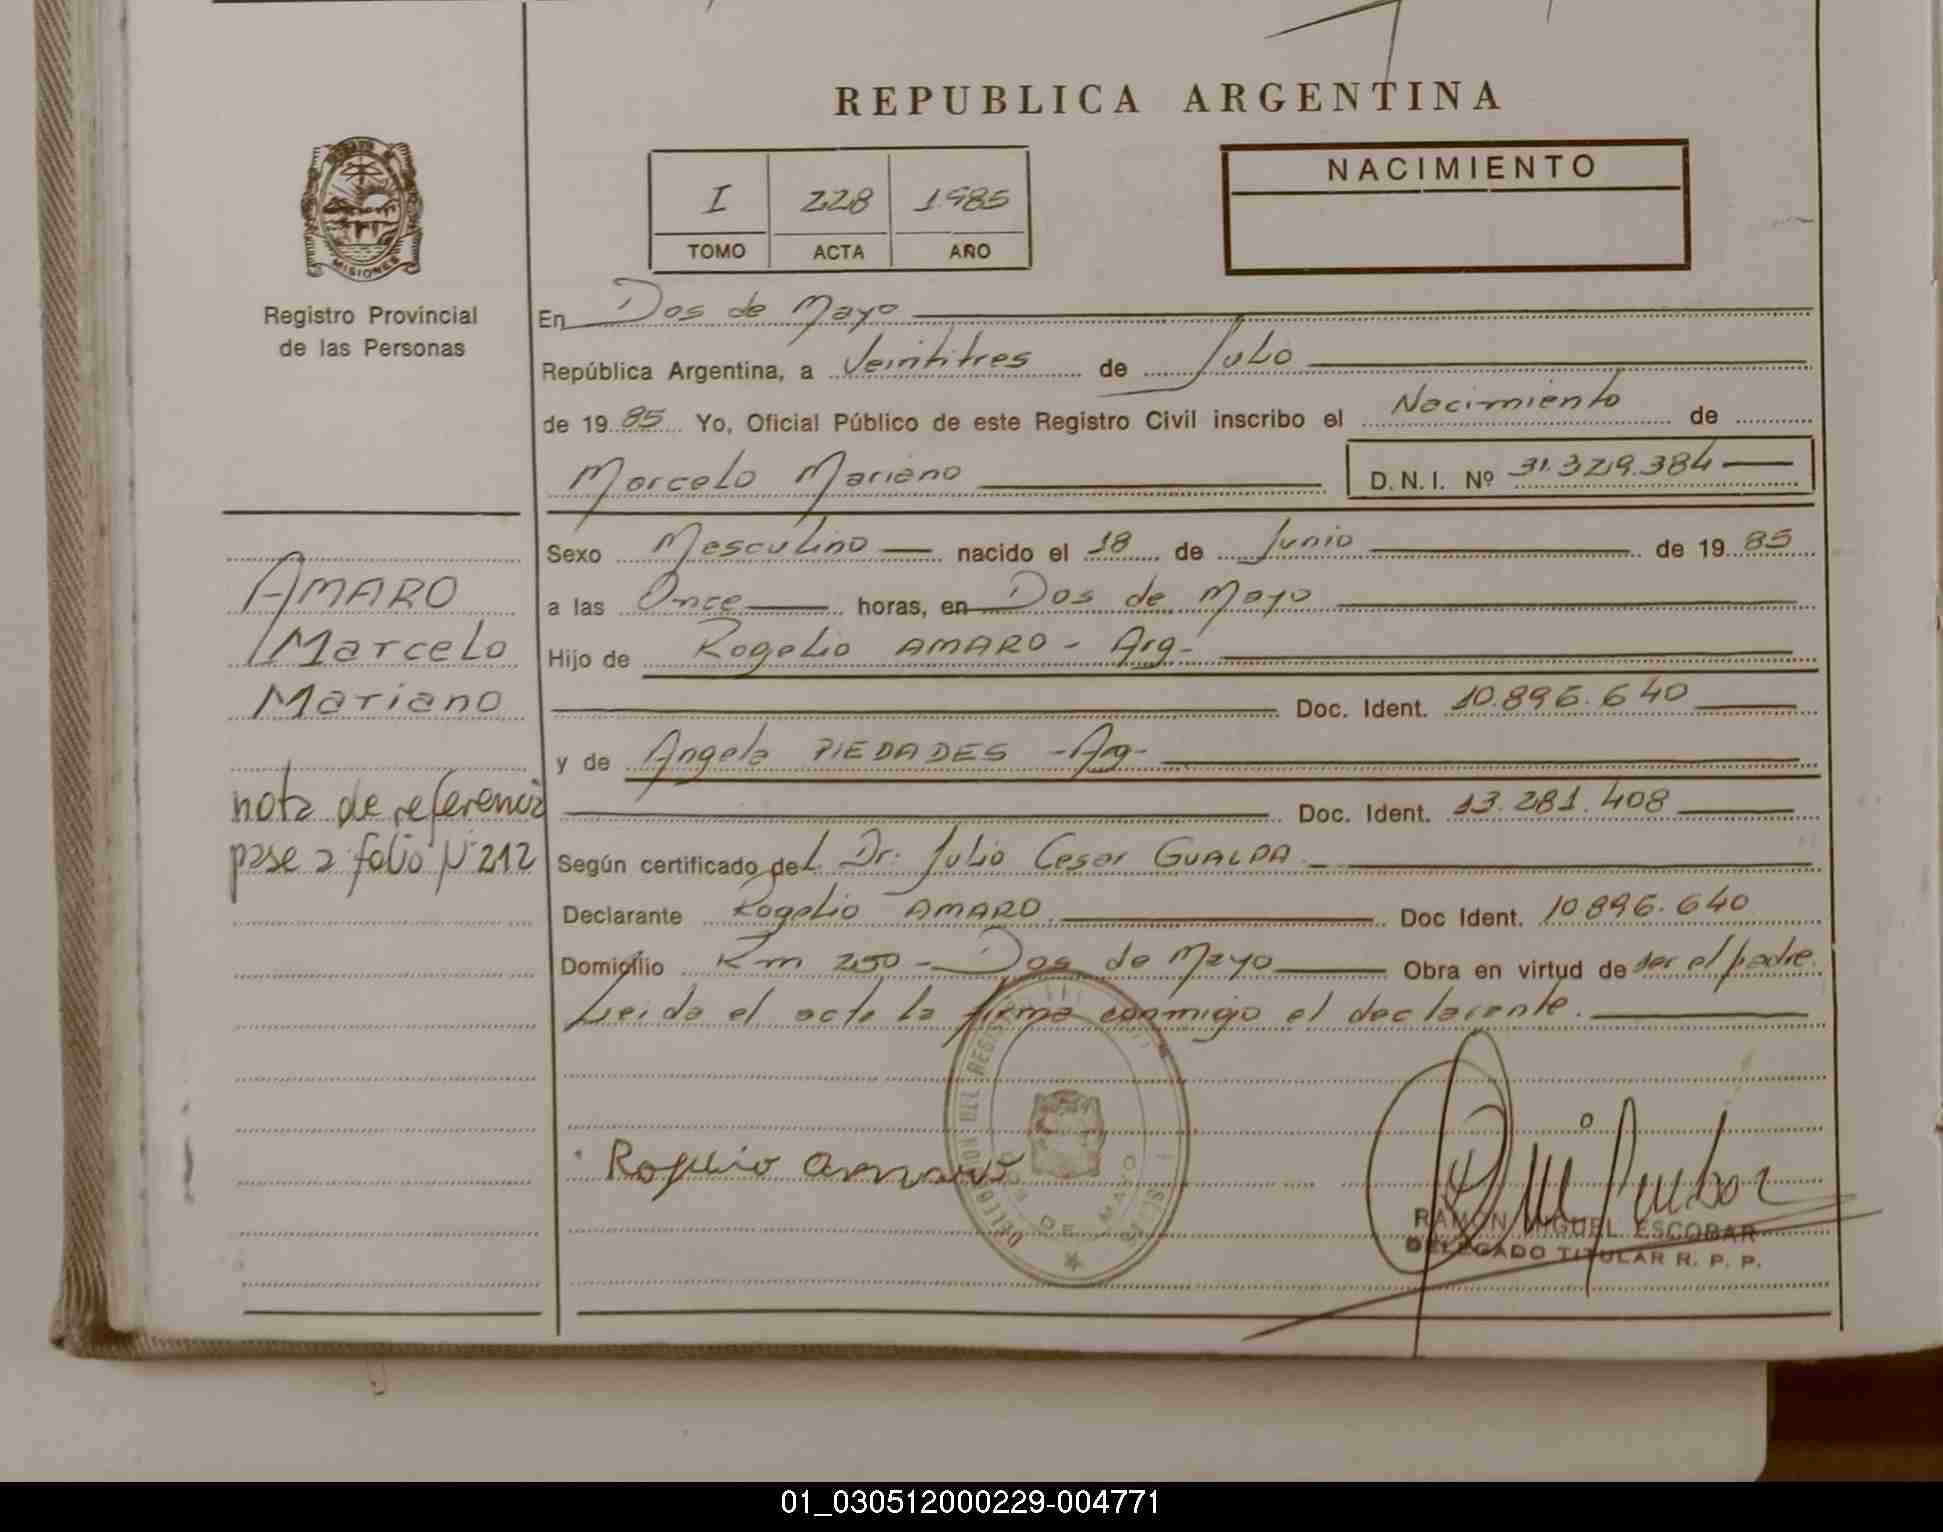 REPUBLICA ARGENTINA
MISIONES
Registro Provincial
de las Personas
I 228 1985
TOMO ACTA AÑO
NACIMIENTO
En Dos de Mayo
República Argentina, a Veintitres de Julio
de 19 85 Yo, Oficial Público de este Registro Civil inscribo el Nacimiento de
Marcelo Mariano D.N.I. Nº 31.329.384
Sexo Masculino nacido el 18 de Junio de 19 85
a las Once horas, en Dos de Mayo
Hijo de Rogelio AMARO - Arg-
Doc. Ident. 10.896.640
y de Angela PIEDADES -Arg-
Doc. Ident. 13.281.408
Según certificado del Dr: Julio Cesar GUALDA.
Declarante Rogelio AMARO. Doc Ident. 10896.640
Domicilio Km 250 - Dos de Mayo Obra en virtud de ser el padre.
Leida el acta la firma conmigo el declarante.
AMARO
Marcelo
Mariano
nota de referencia
pase a folio Nº 212
Rogelio amaro
DOS DE MAYO
RAMON MIGUEL ESCOBAR
DELEGADO TITULAR R. P. P.
01_030512000229-004771